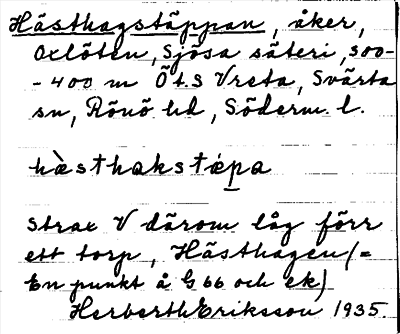 Hästhagstäppan, åker,
Oxlöten, Sjösa säteri, 300-
-400 m Öt.S Vreta, Svärta
sn, Rönö hd, Söderm. l.
hὰsthakstɛ́pa
Strax V därom låg förr
ett torp, Hästhagen (=
En punkt å G 66 och ek)
Herberth Eriksson 1935.